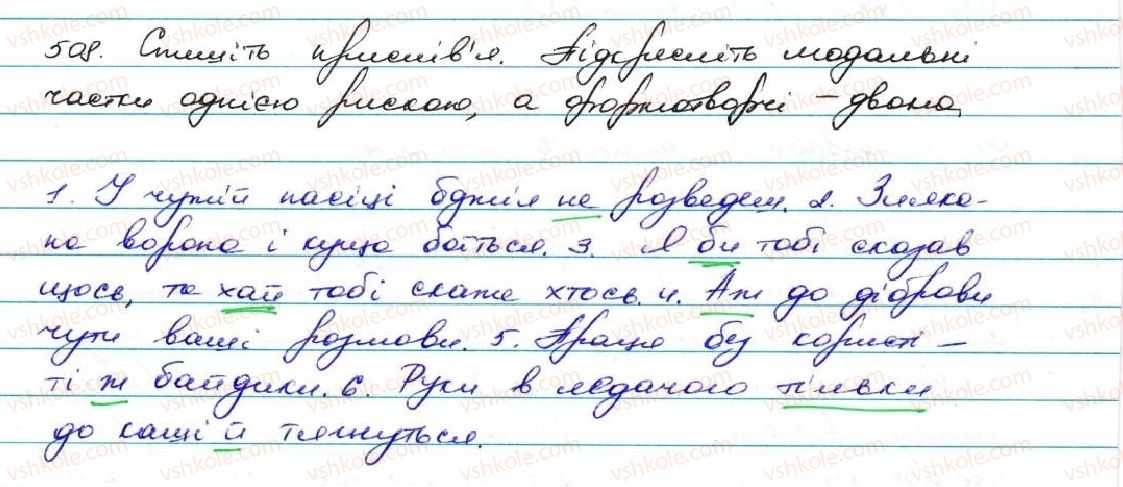 508. Спишіть прислів'я. Підкресліть модальні
частки однією рискою, а формотворчі – двома.
1. У чужій пасіці бджіл не розведеш. 2. Зляка-
на ворона і куща боїться. 3. Я би тобі сказав
щось, та хай тобі скаже хтось. 4. Аж до діброви
чути ваші розмови. 5. Праця без користі –
ті ж байдики. 6. Руки в ледачого тільки
до каші й тягнуться.